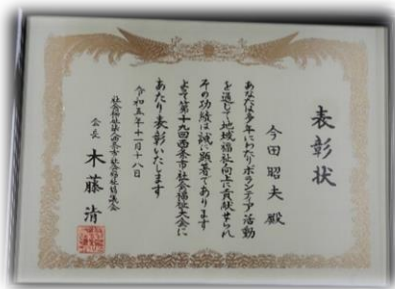 表彰状
今田昭夫殿
あなたは多年にわたりボランティア活動
を通じて地域福祉向上に貢献せられ
その功績は誠に顕著であります
よって第十九回西条市社会福祉大会に
あたり表彰いたします
令和五年十一月十八日
社会福祉法人西条市社会福祉協議会
会長 木藤清